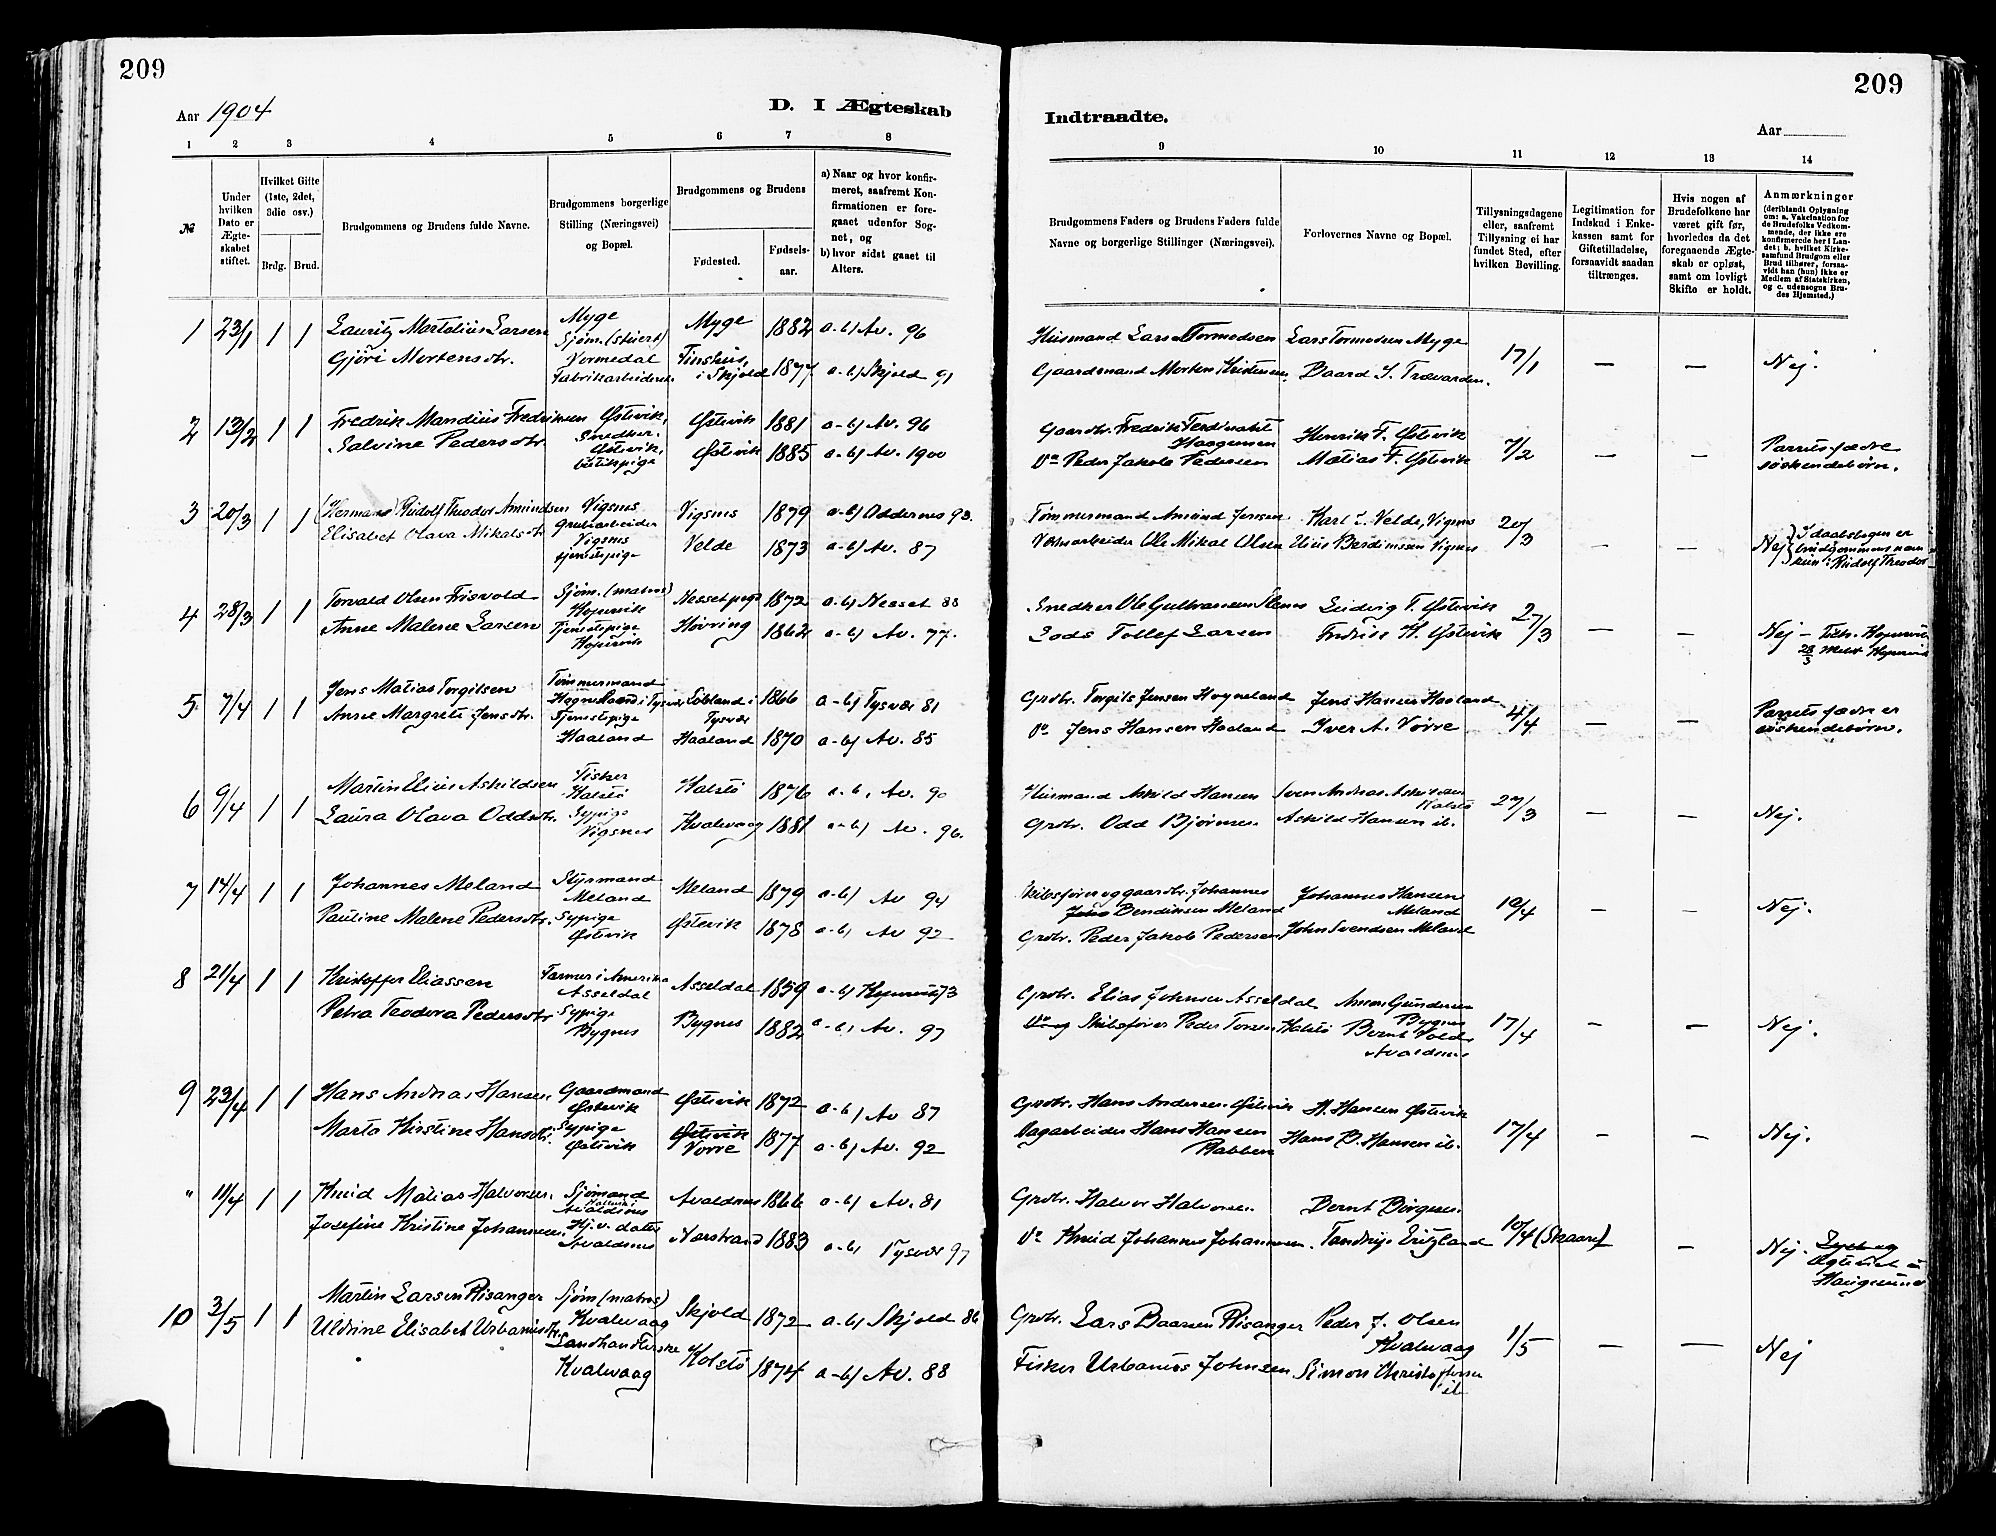 209
209
Aar 1904
D. I Ægteskab
Indtraadte.
Aar
1 2 3 4 5 6 7 8 9 10 11 12 13 14
№
Under hvilken Dato er Ægteskabet stiftet.
Hvilket Gifte (1ste, 2det, 3die osv.)
Brdg. Brud.
Brudgommens og Brudens fulde Navne.
Brudgommens borgerlige Stilling (Næringsvei) og Bopæl.
Brudgommens og Brudens
Fødested.
Fødselsaar.
a) Naar og hvor konfirmeret, saafremt Konfirmationen er foregaaet udenfor Sognet, og
b) hvor sidst gaaet til Alters.
Brudgommens Faders og Brudens Faders fulde Navne og borgerlige Stillinger (Næringsvei).
Forlovernes Navne og Bopæl.
Tillysningsdagene eller, saafremt Tillysning ei har fundet Sted, efter hvilken Bevilling.
Legitimation for Indskud i Enkekassen samt for Giftetilladelse, forsaavidt saadan tiltrænges.
Hvis nogen af Brudefolkene har været gift før, hvorledes da det foregaaende Ægteskab er opløst, samt om lovligt Skifte er holdt.
Anmærkninger
(deriblandt Oplysning om: a. Vakcination for de Brudefolks Vedkommende, der ikke ere konfirmerede her i Landet; b. hvilket Kirkesamfund Brudgom eller Brud tilhører, forsaavidt han (hun) ikke er Medlem af Statskirken, og c. udensogns Brudes Hjemsted.)
1 23/1 1 1 Lauritz Martelius Larsen Myge Sjøm. (stuert) Myge 1882 a-b) Av. 96 Husmand Lars Tormodsen Lars Tormodsen Myge 17/1 — — Nej.
Gjøri Mortensdtr. Vormedal Fabrikarbeidersk. i Skjold 1877 a-b) Skjold 91 Gaardmand Morten Kristensen Baard S. Trævarden.
2 13/2 1 1 Fredrik Mandius Fredriksen Østevik, Snedker. Østevik 1881 a-b) Av. 96 Gaardbr. Fredrik Ferdinand Haagensen Henrik F. Østevik 7/2 — — Parrets fædre søskendebørn.
Salvine Pedersdtr. Østevik, Østevik 1885 a-b) Av. 1900 Do Peder Jakob Pedersen Matias F. Østevik
3 20/3 1 1 (Herman) Rudolf Theodor Amundsen Vigsnes Grubearbeider Vigsnes 1879 a-b) Oddernes 93. Tømmermand Amund Jensen Karl I. Velde, Vigsnes 20/3 — — Nej { I daabsbogen er brudgommens navn kun: Rudolf Theodor
Elisabet Olava Mikalsdtr Vigsnes tjenestepige Velde 1873 a-b) Av. 87 Ole Mikal Olsen Berdinessen Vigsnes
4 28/3 1 1 Torvald Olsen Frisvold Sjøm. (matros) Kopervik 1872 a-b) Nesset 88 Snedker Ole Gulbransen Ludvig T. Østevik 27/3 — — Nej —
Anne Malene Larsen Tjenestepige Kopervik Høvring 1862 a-b) Av. 77. Lods Tollef Larsen Fredrik H. Østevik
5 7/4 1 1 Jens Matias Torgilsen Tømmermand i Tysvær 1866 a-b) Tysvær 81 Grdbr. Torgils Jensen Høgneland Jens Hansen Haaland 4/4 — — Parrets fædre er søskendebørn.
Anne Margrete Jensdtr. Tjenestepige Haaland Haaland 1870 a-b) Av. 85 Do Jens Hansen Haaland Iver A. Vorre
6 9/4 1 1 Martin Elius Askildsen Fisker Kolstø Kolstø 1876 a-b) Av. 90 Husmand Askild Hansen Sven Andreas Askildsen Kolstø 27/3 — — Nej.
Laura Olava Oddsdtr. Sypige Vigsnes Kvalavaag 1881 a-b) Av. 96. Grdbr. Odd Bjørnsen. Askild Hansen ib.
7 14/4 1 1 Johannes Meland Styrmand Meland Meland 1879 a-b) Av 94 Skibsfører og gaardbr. Johannes Bendiksen Meland Johannes Hansen Meland 10/4 — — Nej.
Pauline Malene Pedersdtr. Sypige Østevik Østevik 1878 a-b) Av 92 Grdbr. Peder Jakob Pedersen John Svendsen Meland
8 21/4 1 1 Kristoffer Eliassen Farmer i Amerika Asseldal Asseldal 1859 a-b) Kopervik 73 Grdbr. Elias Johnsen Asseldal Amon Gundersen Bygnes 17/4 — — Nej.
Petra Teodora Pedersdtr Sypige Bygnes Bygnes 1882 a-b) Av. 97 Do og Skibsfører Peder Torsen Kolstø Bernt Vold Avaldsnes
9 23/4 1 1 Hans Andreas Hansen Gaardmand Østevik Østevik 1872 a-b) Av 87 Grdbr. Hans Andersen Østevik H. Hansen Østevik 17/4 — — Nej.
Marta Kirstine Hansdtr. Sypige Østevik Østevik Vorre 1877 a-b) Av. 92 Dagarbeider Hans Hansen Rabben Hans B. Hansen ib.
" 11/4 1 1 Knud Matias Halvorsen. Sjømand Avaldsnes Avaldsnes 1866 a-b) Av. 81 Grdbr. Halvor Halvorsen Bernt Børgesen 10/4 (Skaare) — Nej.
Josefine Kristine Johannesen Hj.v. datter Avaldsnes Nerstrand 1883 a-b) Tysvær 97 Do Knud Johannes Johannesen.
10 3/5 1 1 Martin Larsen Risanger Sjøm (matros) Kvalevaag Skjold 1872 a-b) Skjold 86 Grdbr. Lars Baarsen Risanger Peder J. Olsen Kvalevaag 1/5 — — Nej
Uldrine Elisabet Urbanusdtr. Landhandlerske Kvalevaag Kolstø 1874 a-b) Av. 88 Fisker Urbanus Johnsen Simon Christoffersen ib.